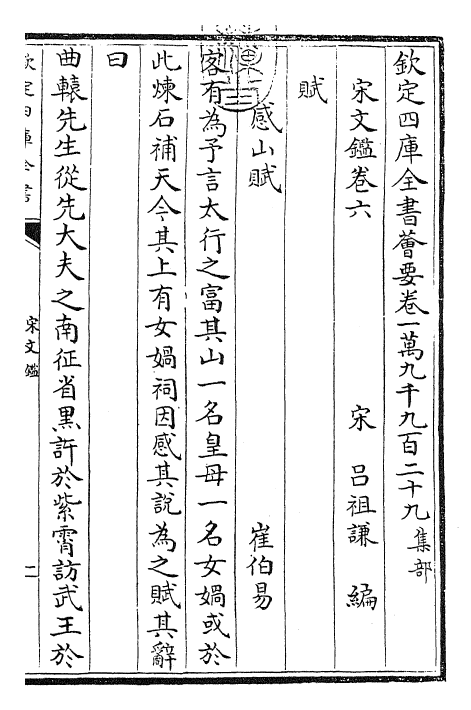 欽定四庫全書薈要卷一萬九千九百二十九集部
宋文鑑卷六 宋 呂祖謙 編
賦
感山賦 崔伯易
客有為予言太行之富其山一名皇母一名女媧或於
此煉石補天今其上有女媧祠因感其說為之賦其辭
曰
曲轅先生從先大夫之南征省黒許於紫霄訪武王於
欽定四庫全書
宋文鑑